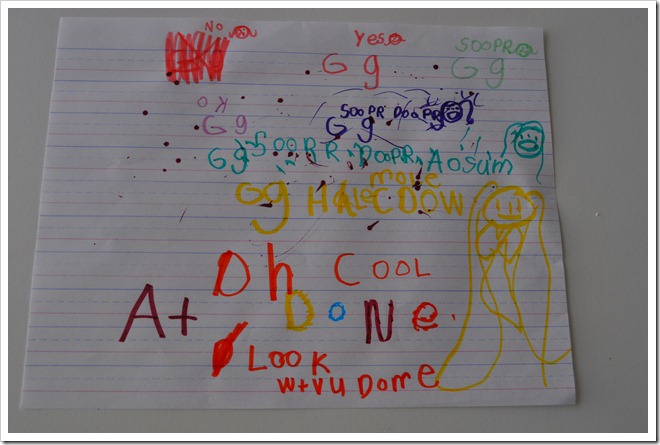 No Yes SOOPR
G g G g
KO
G g SOOPR DOOPR
G g
Gg SOORR DOOPR Aosum
move
Gg
Dh COOL
A+ DONe.
LOOK
W+VU Dome